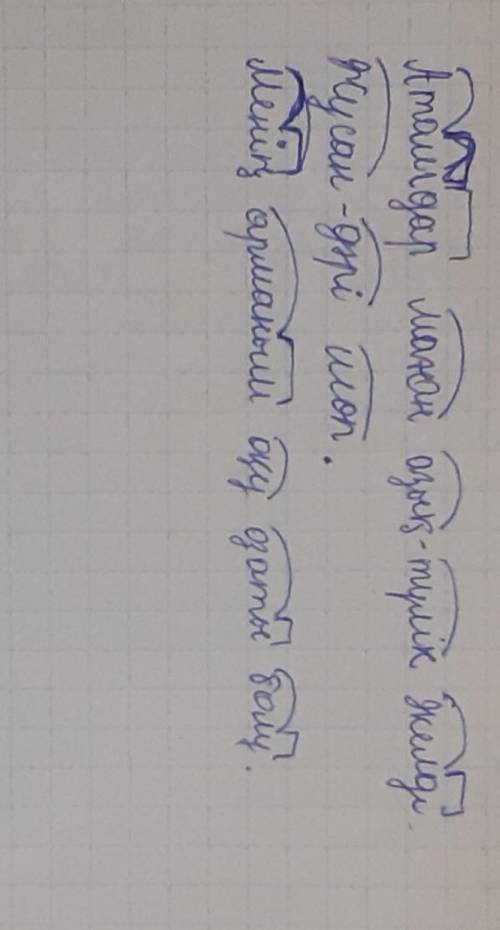 Атамдар маған азық-түлік әкелді.
Жусан-дәрі шөп.
Менің арманым оқу озаты болу.